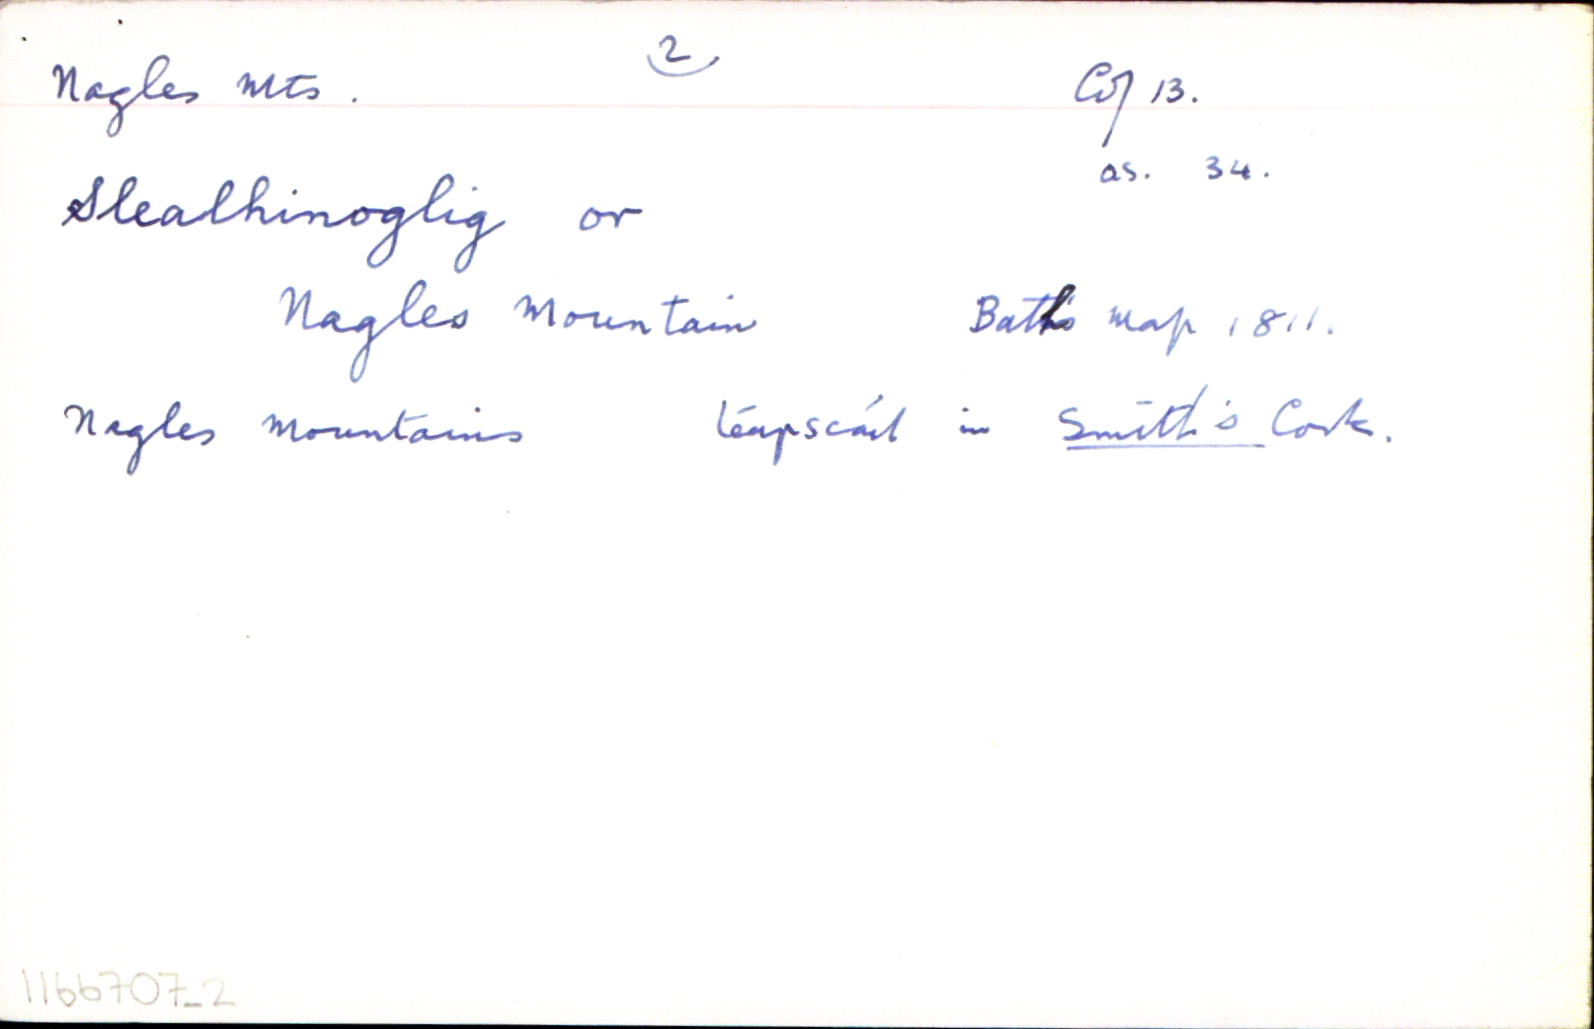 Nagles Mts. 2
Co/ 13.
as. 34.
Sleabhinoglig or
Nagles Mountain Bath's map 1811.
Nagles Mountains léarscáil in Smith's Cork.
1166707_2